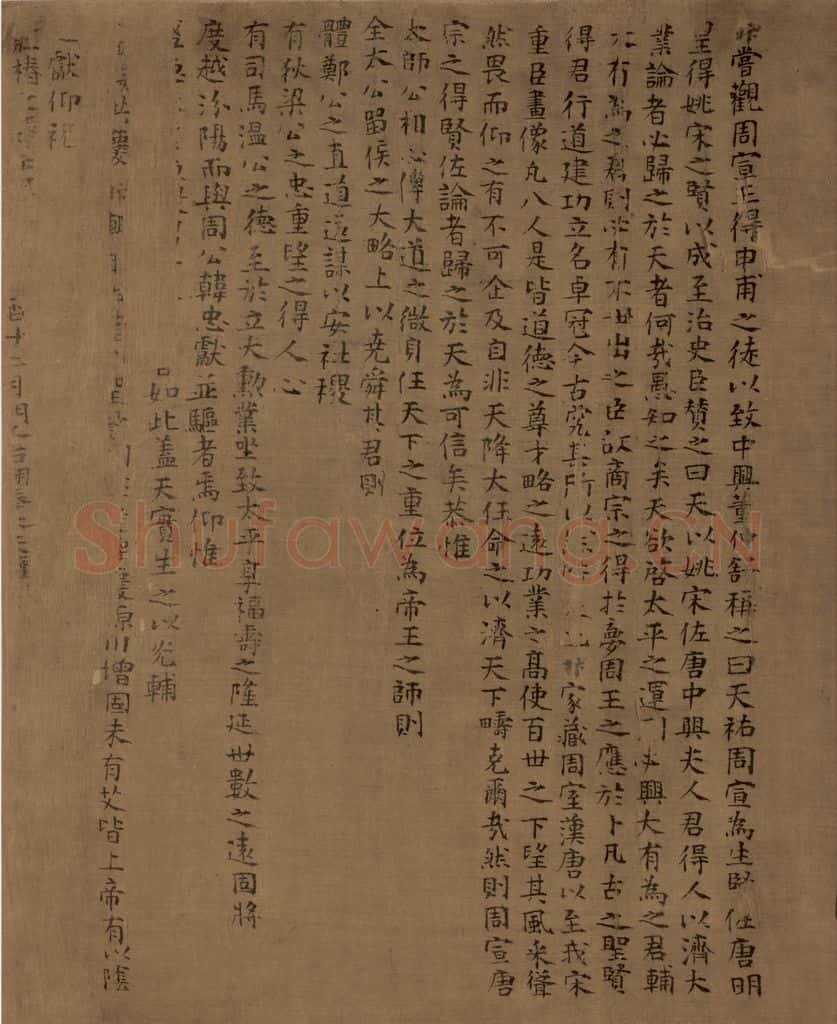 嘗觀周宣王得申甫之徒以致中興董仲舒稱之曰天祐周宣為生賢佐唐明
皇得姚宋之賢以成至治史臣贊之曰天以姚宋佐唐中興夫人君得人以濟大
業論者必歸之於天者何哉愚知之矣天欲啓太平之運必興大有為之君輔
有為之君則必有不世出之臣故商宗之得於夢周王之應於卜凡古之聖賢
得君行道建功立名卓冠今古究其所以家藏周室漢唐以至我宋
重臣畫像凡八人是皆道德之尊才略之遠功業之高使百世之下望其風采聳
然畏而仰之有不可企及自非天降大任命之以濟天下疇克爾哉然則周宣唐
宗之得賢佐論者歸之於天為可信矣恭惟
太師公相心傳大道之微身任天下之重位為帝王之師則
全太公留侯之大略上以堯舜其君則
體鄭公之直道遠謀以安社稷
有狄梁公之忠重望之得人心
有司馬溫公之德至於立大勳業坐致太平享福壽之隆延世數之遠固將
度越汾陽而與周公韓忠獻並驅者焉仰惟
如此蓋天實生之以光輔
川增固未有艾皆上帝有以陰
獻仰祝
椿
酉十二月
Shufawang.CN